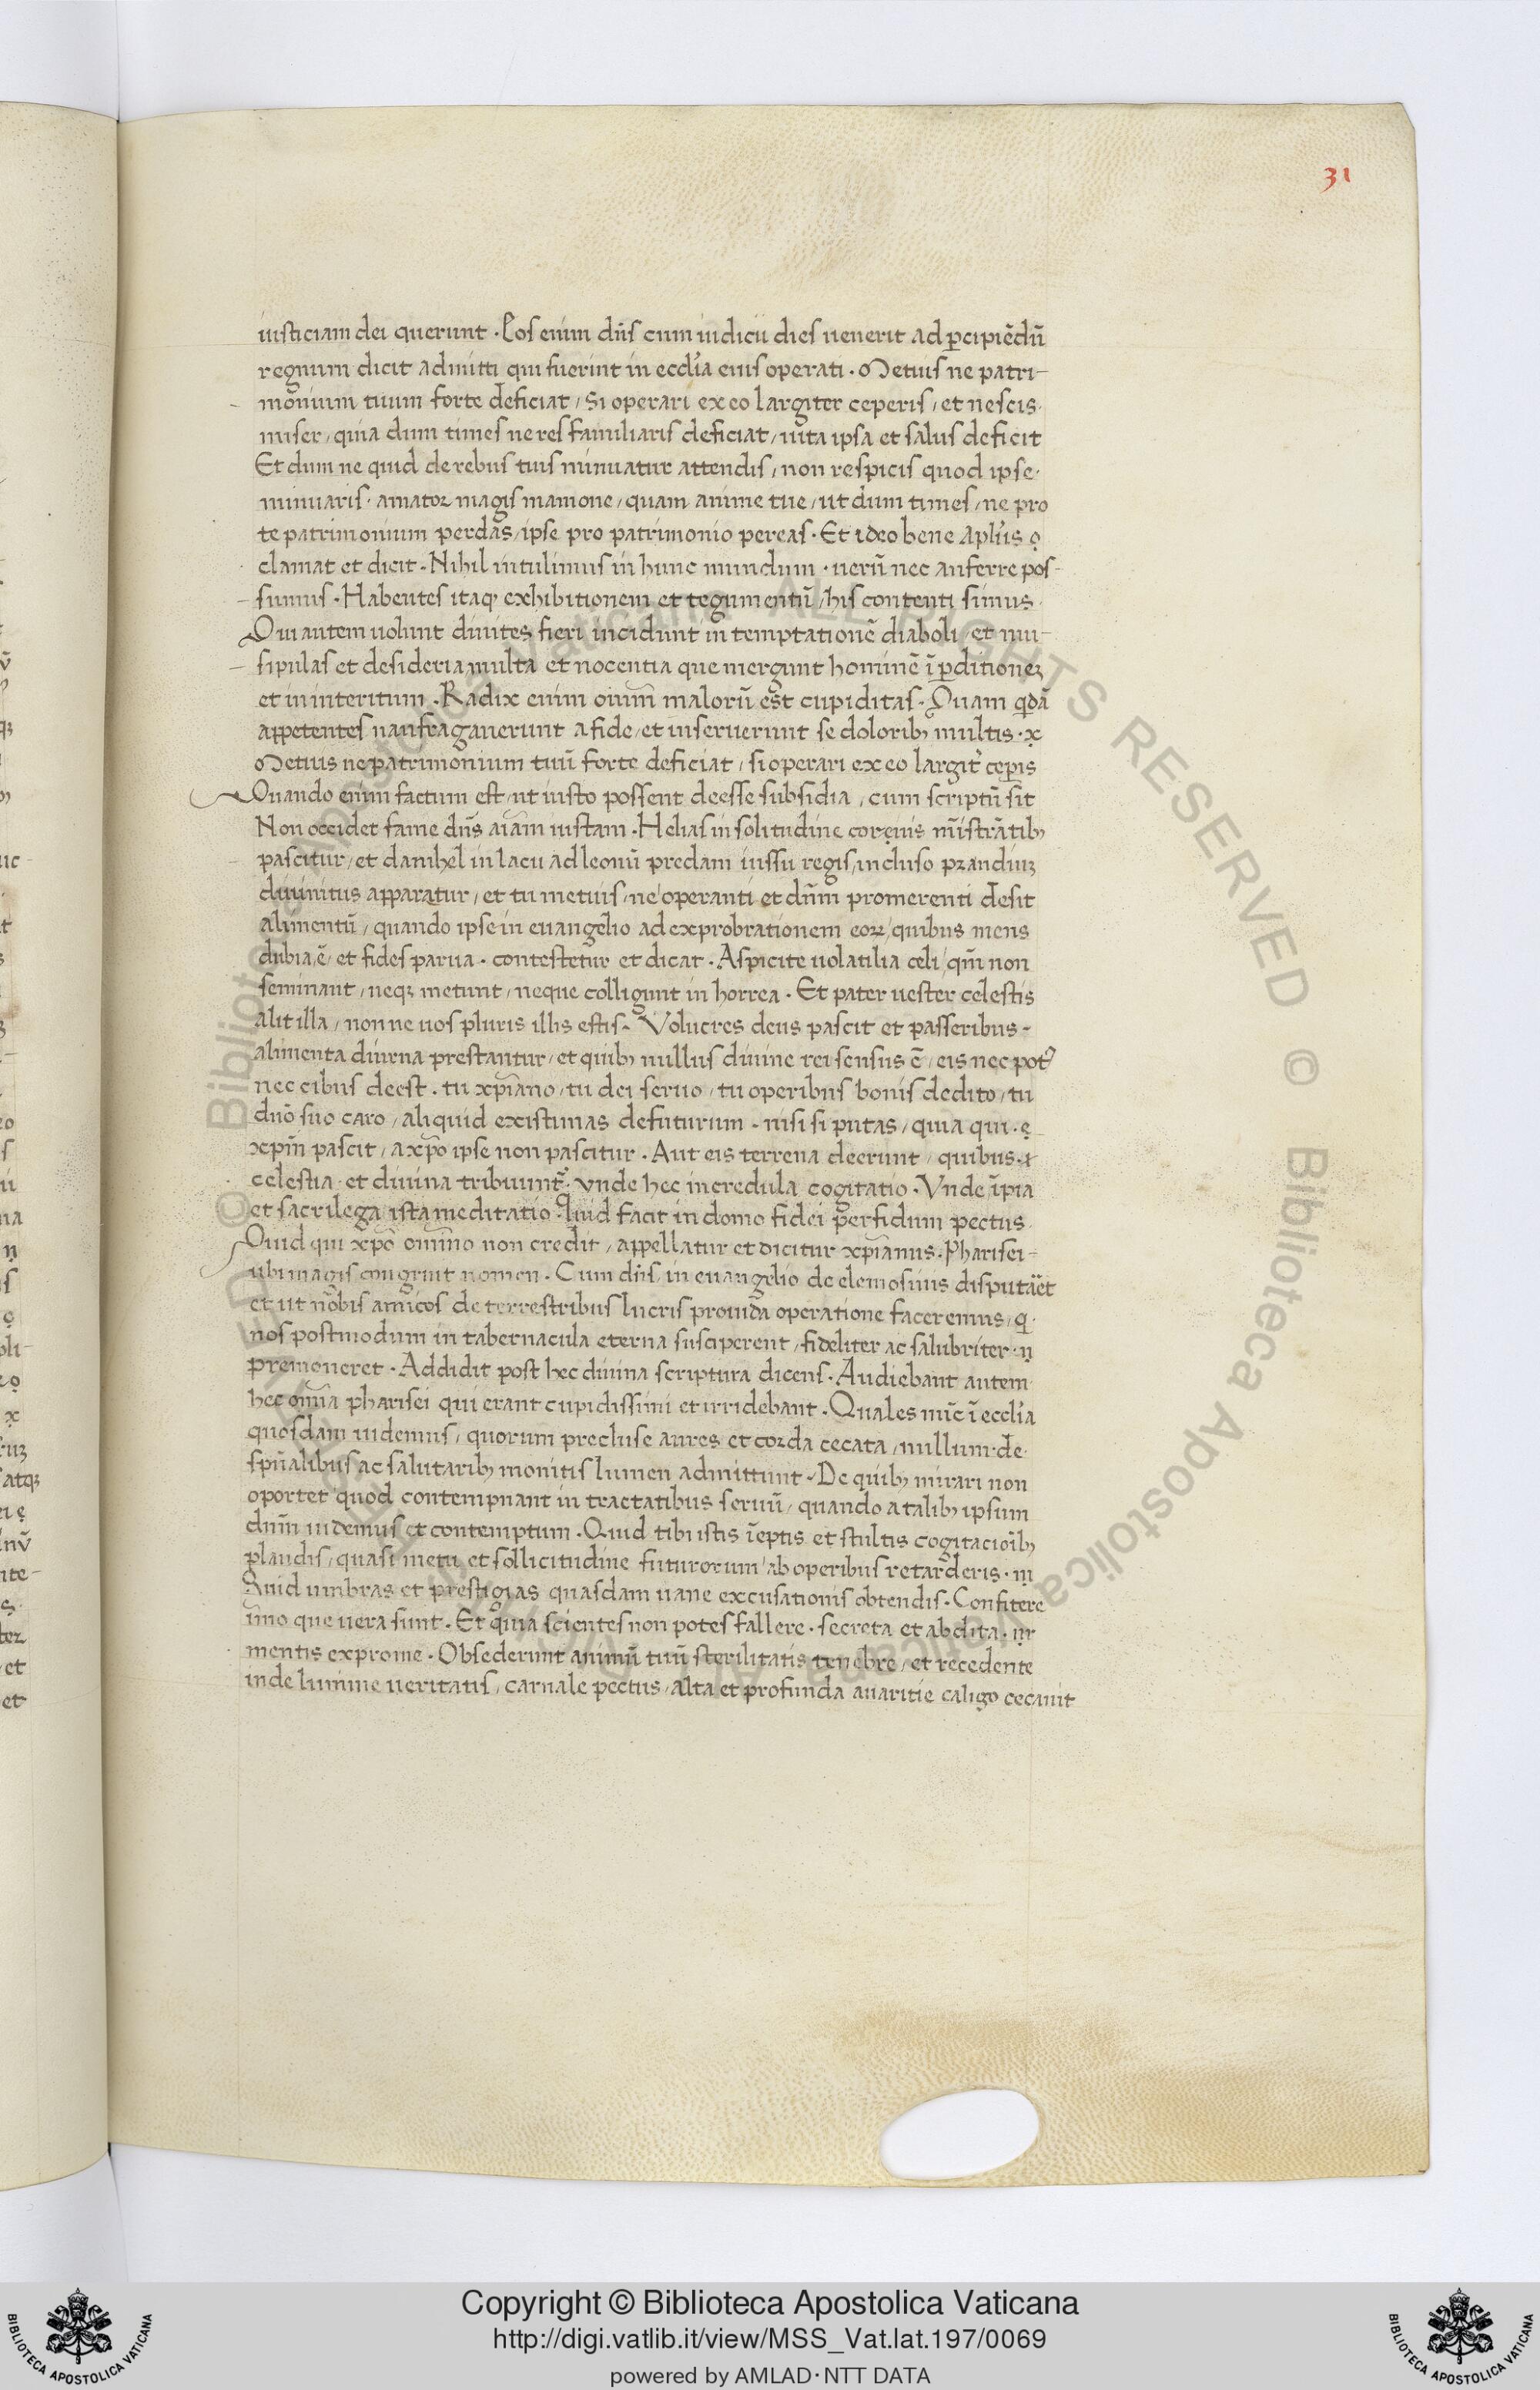 31
iusticiam dei querunt · Eos enim dn̄s cum iudicii dies uenerit ad p̱cipiēdū
regnum dicit admitti qui fuerint in eccl̄ia eius operati · Metuis ne patri-
monium tuum forte deficiat / si operari ex eo largiter ceperis / et nescis
miser / quia dum times ne res familiaris deficiat / uita ipsa et salus deficit
Et dum ne quid de rebus tuis minuatur attendis / non respicis quod ipse
minuaris · amator magis mamone / quam anime tue / ut dum times / ne pro
te patrimonium perdas / ipse pro patrimonio pereas · Et ideo bene apl̄us ọ
clamat et dicit · Nihil intulimus in hunc mundum · uerū nec auferre pos-
sumus · Habentes itaqꝫ exhibitionem et tegumentū / his contenti simus ·
Qui autem uolunt diuites fieri incidunt in temptationē diaboli / et mu-
sipulas et desideria multa et nocentia que mergunt hominē ī ꝑditioneꝫ
et in interitum · Radix enim oium̄ malorū est cupiditas · Quam qͥdā
appetentes naufragauerunt a fide / et inseruerunt se doloribꝫ multis · x̣
Metuis ne patrimonium tuū forte deficiat / si operari ex eo largit᷑ ceꝑis
Quando enim factum est / ut iusto possent deesse subsidia / cum scriptū sit
Non occidet fame dn̄s aīam iustam · Helias in solitudine corẹuis m̄istrātibꝫ
pascitur / et danihel in lacu ad leonū predam iussu regis / incluso prandiuꝫ
diuinitus apparatur / et tu metuis / ne operanti et dn̄m promerenti desit
alimentū / quando ipse in euangelio ad exprobrationem eoꝝ / quibus mens
dubia ē / et fides parua · contestetur et dicat · Aspicite uolatilia celi / qm̄ non
seminant / neqꝫ metunt / neque colligunt in horrea · Et pater uester celestis
alit illa / non ne uos pluris illis estis · Volucres deus pascit et passeribus -
alimenta diurna prestantur / et quibꝫ nullus diuine rei sensus ē / eis nec pot᷑
nec cibus deest · tu xp̄iano / tu dei seruo / tu operibus bonis dedito / tu
dn̄o suo caro / aliquid existimas defuturum · nisi si putas / quia qui · ẹ
xp̄m pascit / a xp̄o ipse non pascitur · Aut eis terrena deerunt / quibus ·
celestia et diuina tribuunt᷑ · vnde hec incredula cogitatio · Vnde īpia
et sacrilega ista meditatio · Quid facit in domo fidei perfidum pectus
Quid qui xp̄o omīno non credit / appellatur et dicitur xp̄ianus · Pharisei -
ubi magis congruit nomen · Cum dn̄s / in euangelio de elemosinis disputāet
et ut nobis amicos de terrestribus lucris prouida operatione faceremus / q̣
nos postmodum in tabernacula eterna susciperent / fideliter ac salubriter · ṇ
premoneret · Addidit post hec diuina scriptura dicens · Audiebant autem
hec omīa pharisei qui erant cupidissimi et irridebant · Quales nūc ī eccl̄ia
quosdam uidemus / quorum precluse aures et corda cecata / nullum · de
sp̄ualibus ac salutaribꝫ monitis lumen admittunt · De quibꝫ mirari non
oportet quod contempnant in tractatibus seruū / quando a talibꝫ ipsum
dn̄m uidemus et contemptum · Quid tibi istis īeptis et stultis cogitacioībꝫ
plaudis / quasi metu et sollicitudine futurorum ab operibus retarderis · ṃ
Quid umbras et prestigias quasdam uane excusationis obtendis · Confitere
īmo que uera sunt · Et quia scientes non potes fallere · secreta et abdita ·
mentis exprome · Obsederunt animū tuū sterilitatis tenebre / et recedente
inde lumine ueritatis / carnale pectus / alta et profunda auaritie caligo cecauit
© Biblioteca Apostolica Vaticana ALL RIGHTS RESERVED
Copyright © Biblioteca Apostolica Vaticana
http://digi.vatlib.it/view/MSS_Vat.lat.197/0069
powered by AMLAD·NTT DATA
BIBLIOTECA APOSTOLICA VATICANA
BIBLIOTECA APOSTOLICA VATICANA